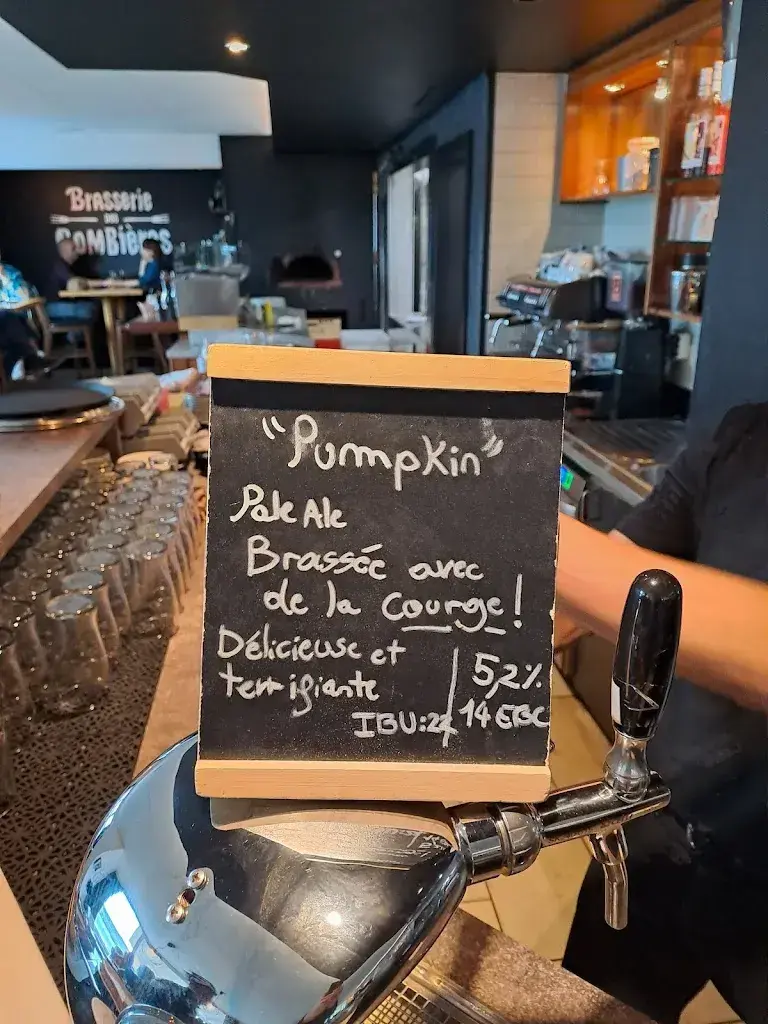 Brasserie
DES
COMBières
"Pumpkin"
Pale Ale
Brassée avec
de la courge!
Délicieuse et
terrifiante
5,2%
IBU:22
14 EBC